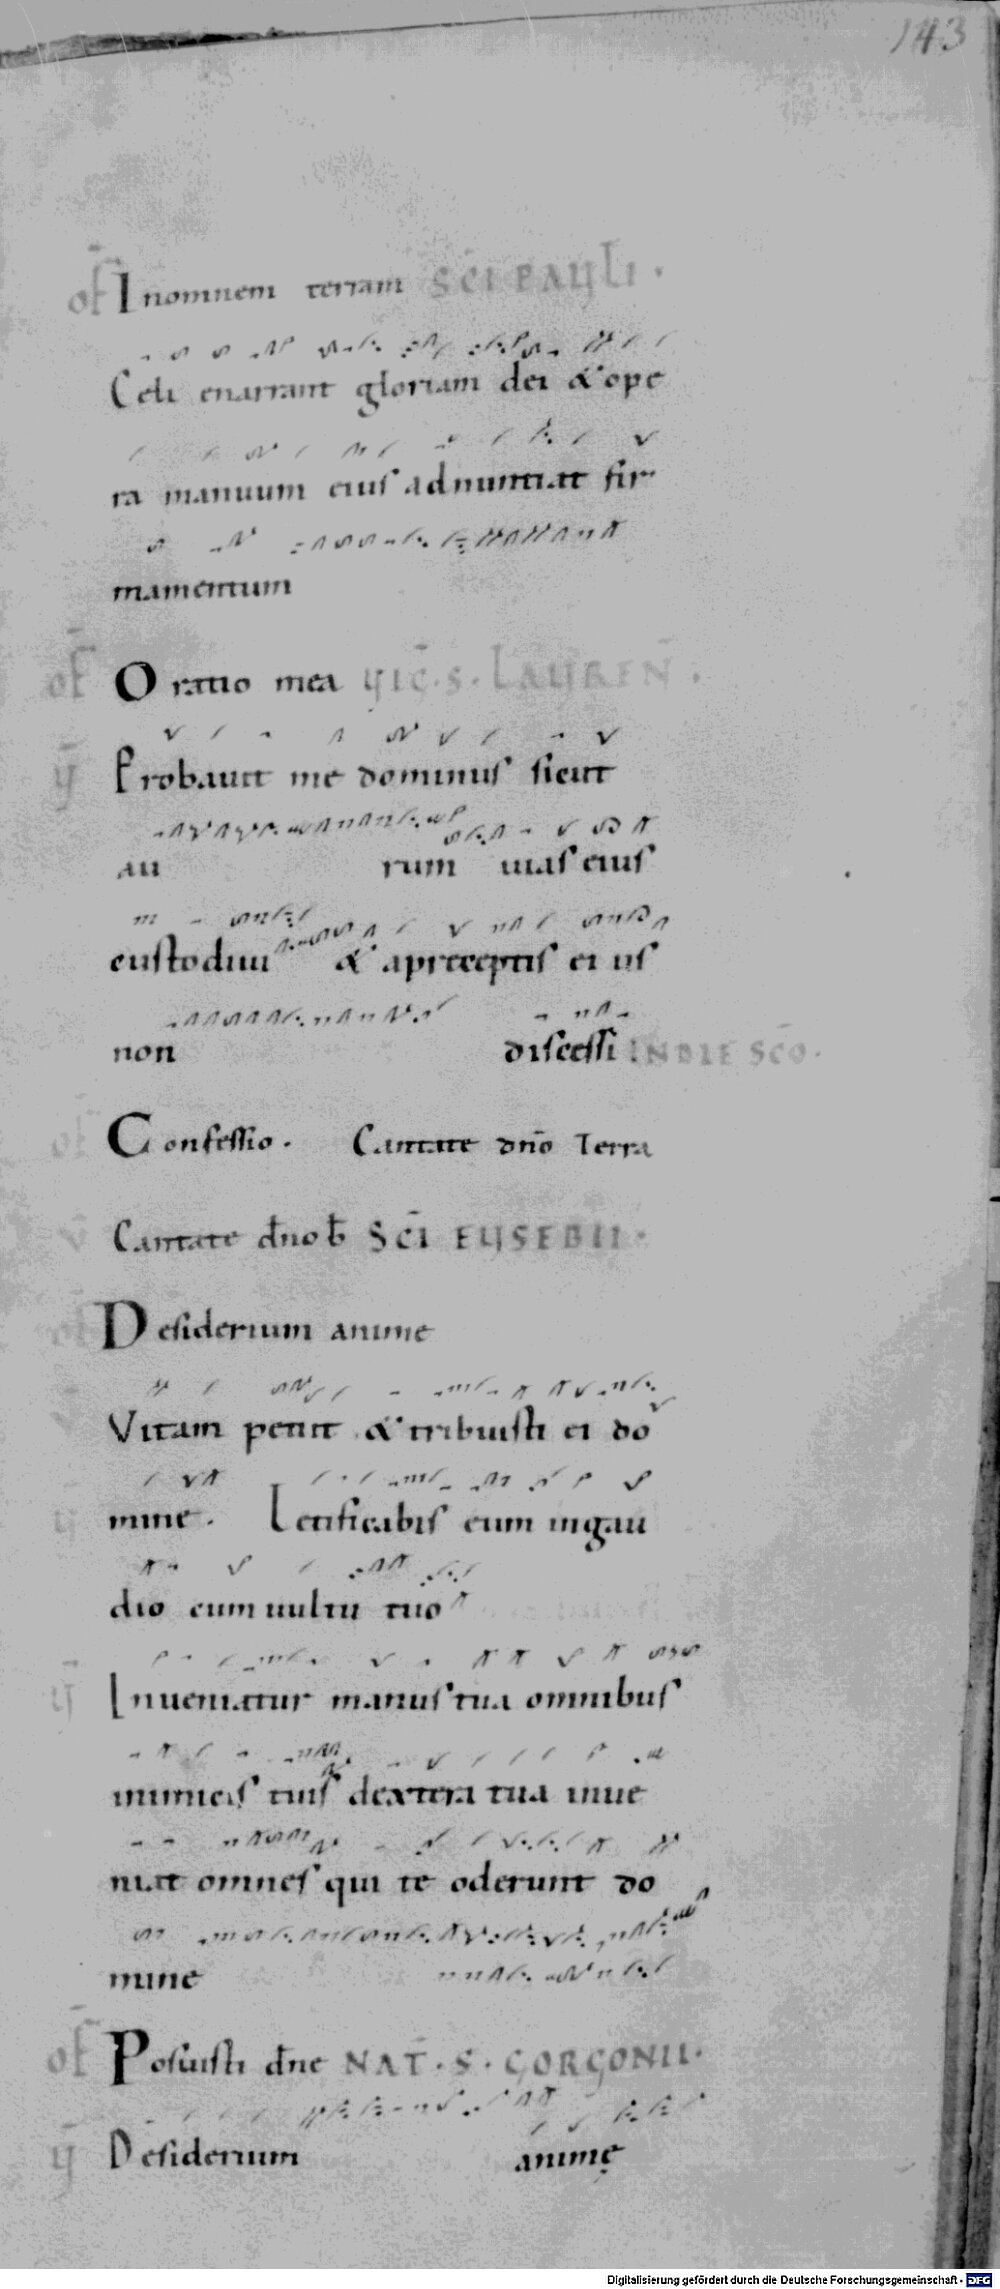 143
of̄ Inomnem terram SC̄I PAULI ·
Celi enarrant gloriam dei & ope
ra manuum eius adnuntiat fir
mamentum
of̄ Oratio mea VIC̄ · S · LAUREN̄ ·
V̄ Probauit me dominus sicut
au rum uias eius
custodiui & apreceptis ei us
non discessi INDIE SC̄O ·
of̄ Confessio · Cantate dn̄o Terra
V̄ Cantate dn̄o b SC̄I EUSEBII ·
of̄ Desiderium anime
V̄ Vitam petiit & tribuisti ei do
mine · Letificabis eum ingau
dio cum uultu tuo
V̄ Inueniatur manus tua omnibus
inimicis tuis dextera tua inue
niat omnes qui te oderunt do
mine
of̄ Posuisti dn̄e NAT̄ · S · GORGONII ·
V̄ Desiderium animę
Digitalisierung gefördert durch die Deutsche Forschungsgemeinschaft - DFG